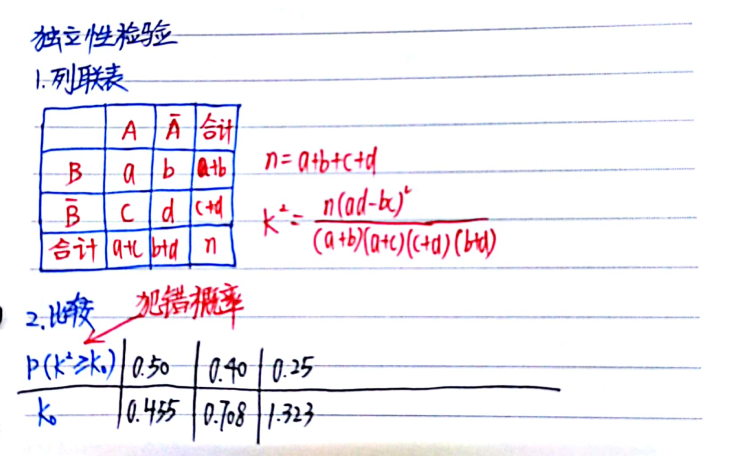 独立性检验
1.列联表
A Ā 合计
B a b a+b
B̄ c d c+d
合计 a+c b+d n
n=a+b+c+d
K²=n(ad-bc)²/(a+b)(a+c)(c+d)(b+d)
2.比较 犯错概率
P(K²≥K₀) 0.50 0.40 0.25
K₀ 0.455 0.708 1.323